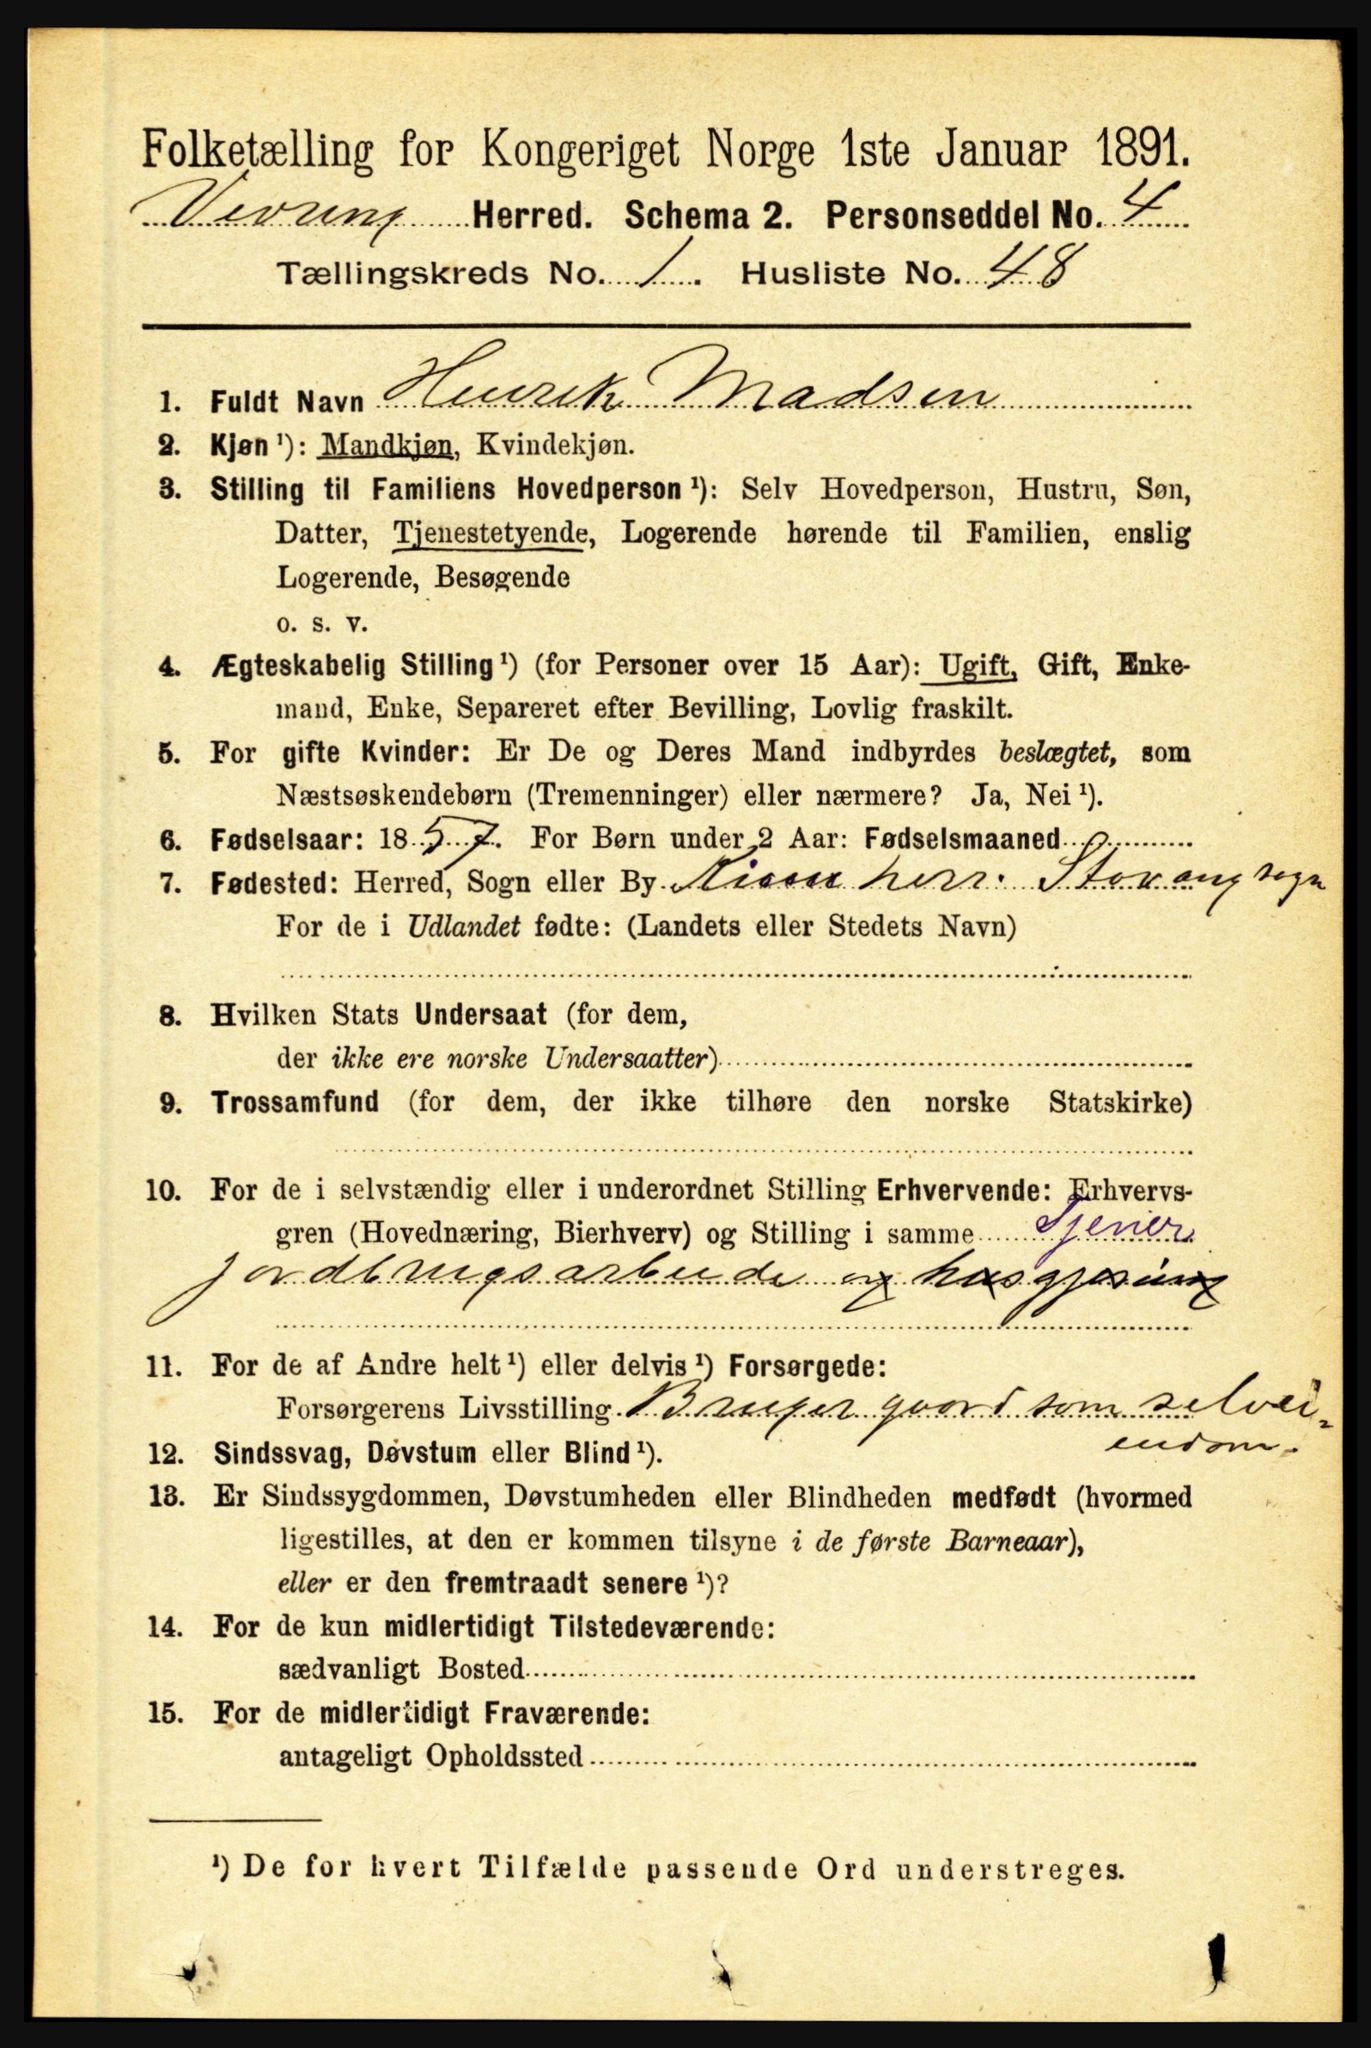 Folketælling for Kongeriget Norge 1ste Januar 1891.
Vevring Herred. Schema 2. Personseddel No. 4
Tællingskreds No. 1. Husliste No. 48
1. Fuldt Navn Henrik Madsen
2. Kjøn¹): Mandkjøn, Kvindekjøn.
3. Stilling til Familiens Hovedperson¹): Selv Hovedperson, Hustru, Søn,
Datter, Tjenestetyende, Logerende hørende til Familien, enslig
Logerende, Besøgende
o. s. v.
4. Ægteskabelig Stilling¹) (for Personer over 15 Aar): Ugift, Gift, Enke-
mand, Enke, Separeret efter Bevilling, Lovlig fraskilt.
5. For gifte Kvinder: Er De og Deres Mand indbyrdes beslægtet, som
Næstsøskendebørn (Tremenninger) eller nærmere? Ja, Nei¹).
6. Fødselsaar: 1857. For Børn under 2 Aar: Fødselsmaaned
7. Fødested: Herred, Sogn eller By Kinn herr. Stavang sogn
For de i Udlandet fødte: (Landets eller Stedets Navn)
8. Hvilken Stats Undersaat (for dem,
der ikke ere norske Undersaatter)
9. Trossamfund (for dem, der ikke tilhøre den norske Statskirke)
10. For de i selvstændig eller i underordnet Stilling Erhvervende: Erhvervs-
gren (Hovednæring, Bierhverv) og Stilling i samme Tjener
jordbrugsarbeide og husgjøring
11. For de af Andre helt¹) eller delvis¹) Forsørgede:
Forsørgerens Livsstilling Bruger gaard som selvei-
endom.
12. Sindssvag, Døvstum eller Blind¹).
13. Er Sindssygdommen, Døvstumheden eller Blindheden medfødt (hvormed
ligestilles, at den er kommen tilsyne i de første Barneaar),
eller er den fremtraadt senere¹)?
14. For de kun midlertidigt Tilstedeværende:
sædvanligt Bosted
15. For de midlertidigt Fraværende:
antageligt Opholdssted
¹) De for hvert Tilfælde passende Ord understreges.